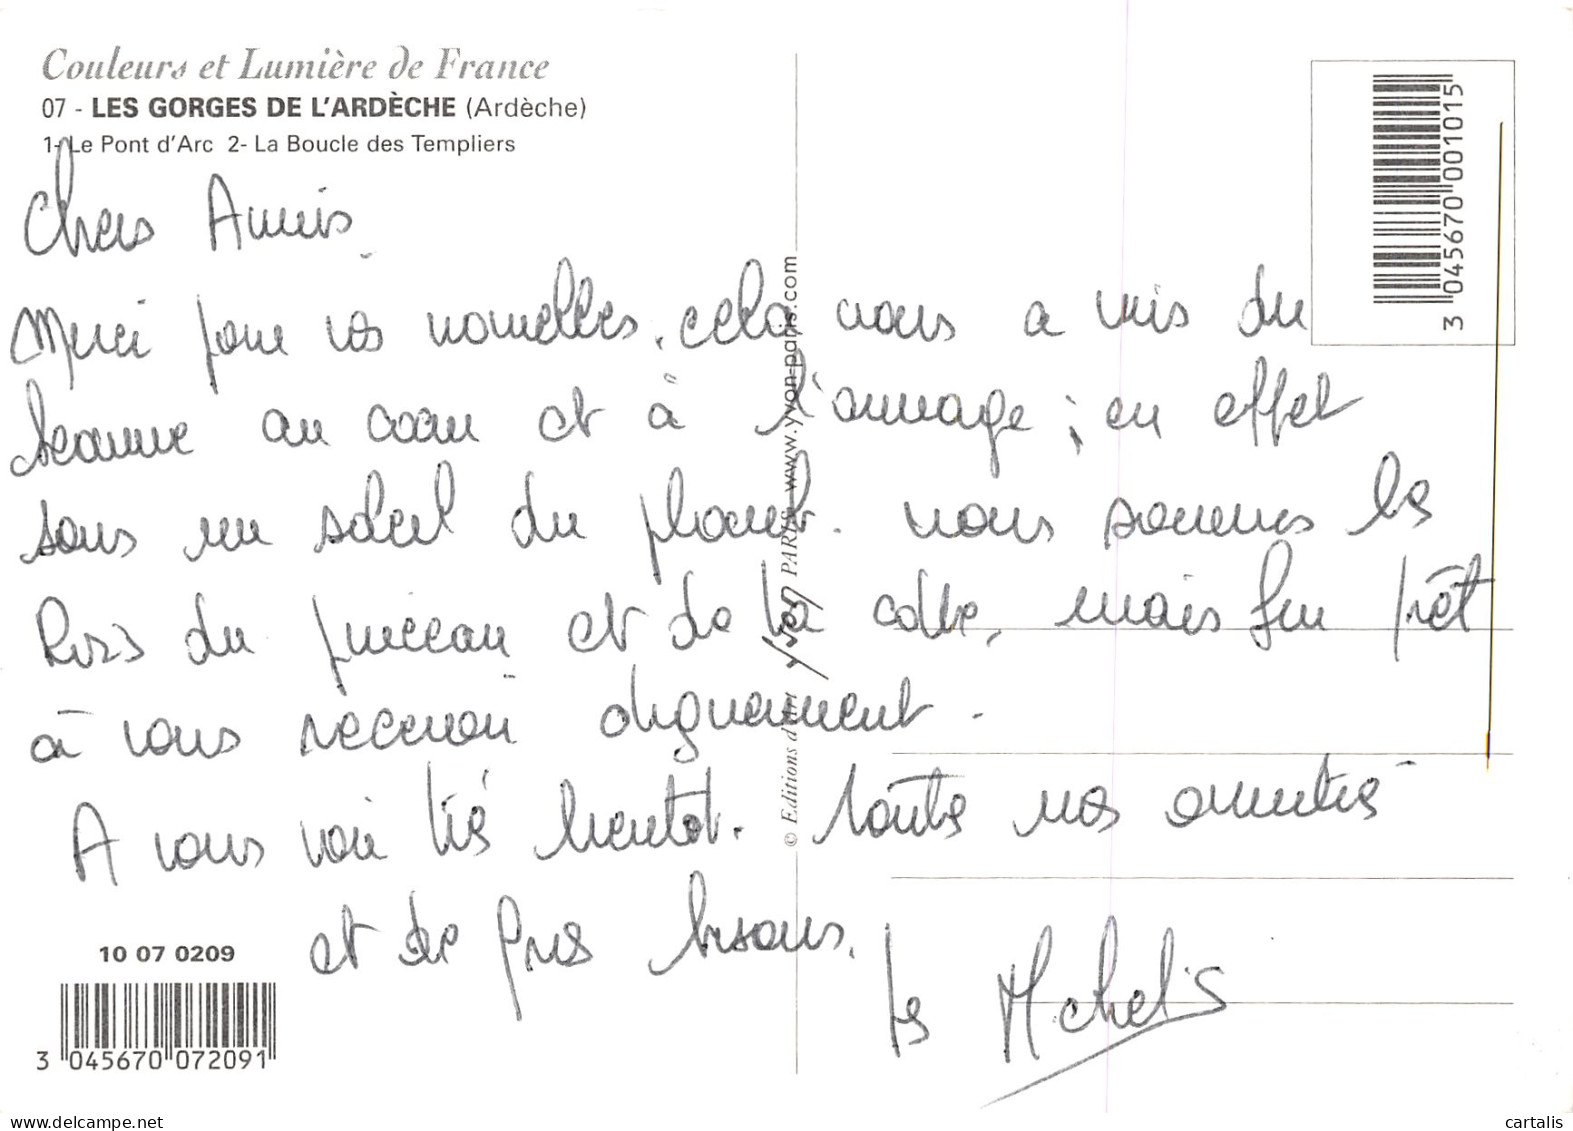 Couleurs et Lumière de France
07 - LES GORGES DE L'ARDÈCHE (Ardèche)
1- Le Pont d'Arc 2- La Boucle des Templiers
3 045670 001015
Chers Amis
Merci pour vos nouvelles, cela nous a mis du
baume au cœur et à l'ouvrage ; en effet
sous un soleil de plomb. nous sommes les
Rois du pinceau et de la colle, mais fin prêt
à vous recevoir dignement.
A vous voir très bientôt. Toutes nos amitiés
et de gros bisous.
les Michel's
© Editions d'art Yvon PARIS www.yvon-paris.com
10 07 0209
3 045670 072091
cartalis
delcampe.net